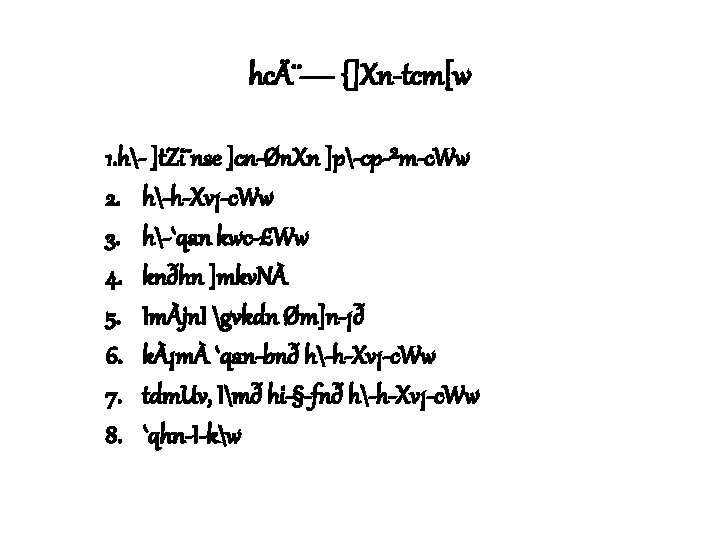 hcÃ¨— {]Xn-tcm[w
1.h\- ]tZi¨nse ]cn-ØnXn ]p\-cp-²m-cWw
2. h\-h-Xvj-cWw
3. h\-`qsan kwc-£Ww
4. knðhn ]mkvNÀ
5. ImÀjnI \gvkdn Øm]n-¡ð
6. kÀ¡mÀ `qsan-bnð h\-h-Xvj-cWw
7. tdmUv, I\mð hi-§-fnð h\-h-Xvj-cWw
8. `qhn-I-k\w